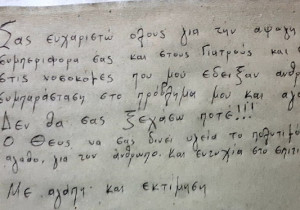 Σας ευχαριστώ ολους για την αψογη
συμπεριφορα σας και στους Γιατρούς και
στις νοσοκόμες που μου εδειξαν ανθρ
συμπαράσταση στο πρόβλημα μου και αγα
Δεν θα σας ξεχασω ποτέ!!!
Ο Θεος να σας δινει υγεία το πολυτιμό
αγαθο, για τον άνθρωπο. και ευτυχία στο σπιτι
Με αγάπη και εκτίμηση